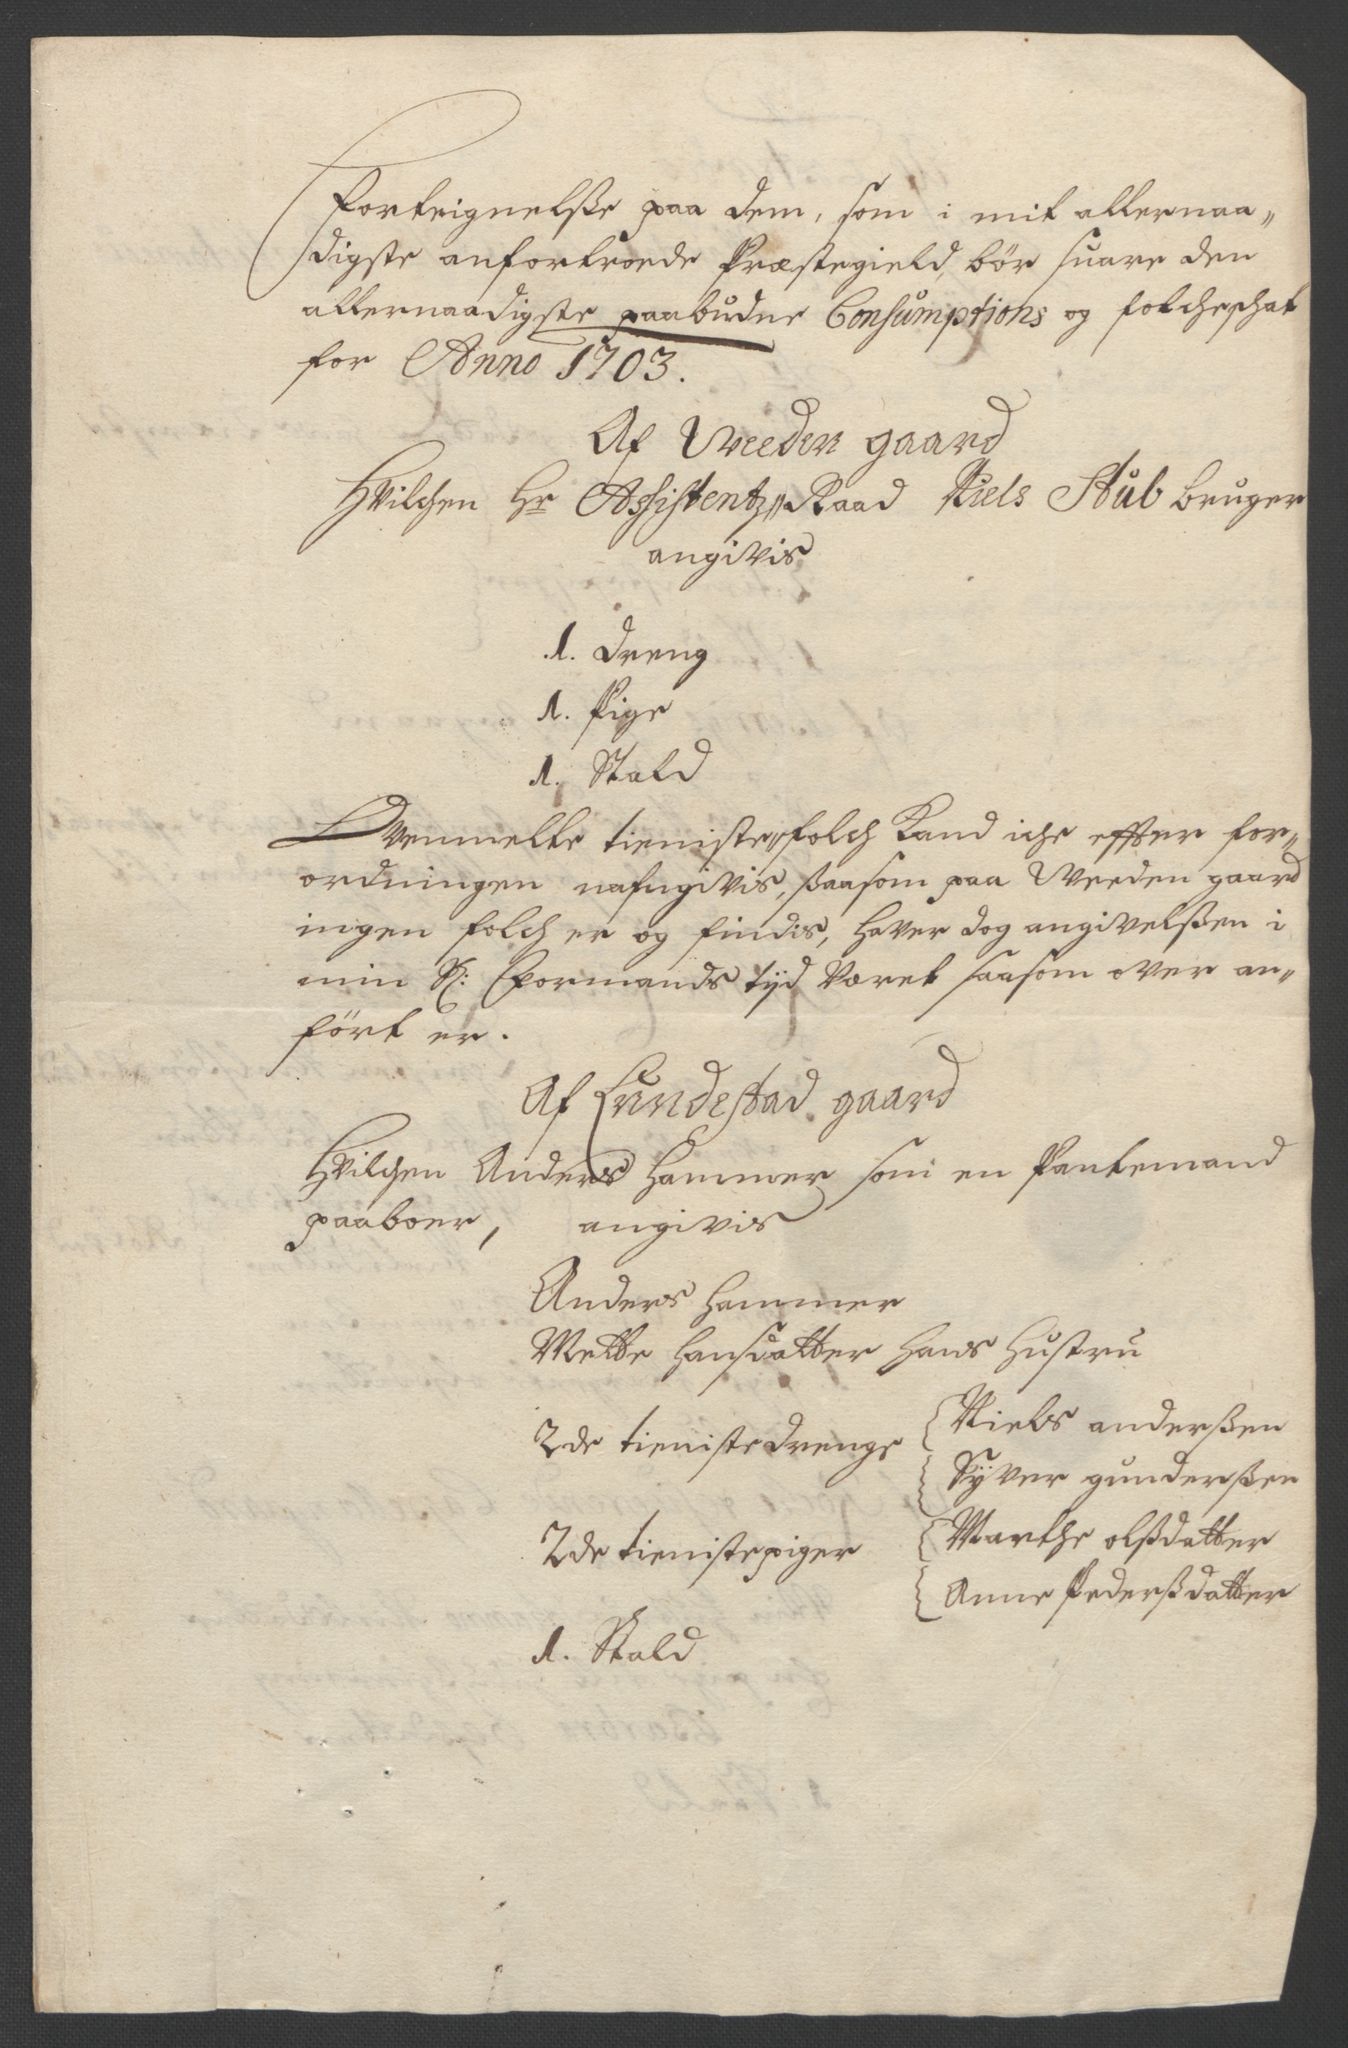 Forteignelsse paa dem, som i mit allernaa„
digste anfortroede Præstegield, bør suare den
allernaadigste paabudne Consumptions og folcheschat
for Anno 1703.
Af Weeden gaard
Hvilchen Hr Assistentz„Raad Niels Stub bruger
angivis
1. Dreng
1. Pige
1. Stald
Ovenmelte tieniste„folch Kand iche effter for„
ordningen nafngivis, saasom paa Weeden gaard
ingen folch er og findis, haver dog angivelssen i
min S: Formands tijd Været saasom over an„
ført er.
Af Lundestad gaard
Hvilchen Anders Hammer som en Pantemand
paaboer, angivis
Anders Hammer
Mette Hansdatter Hans Hustru
2de tienistedrenge { Niels anderssen
{ Syver gunderssen
2de tienistepiger { Marthe olssdatter
{ Anne Pederssdatter
1. Stald